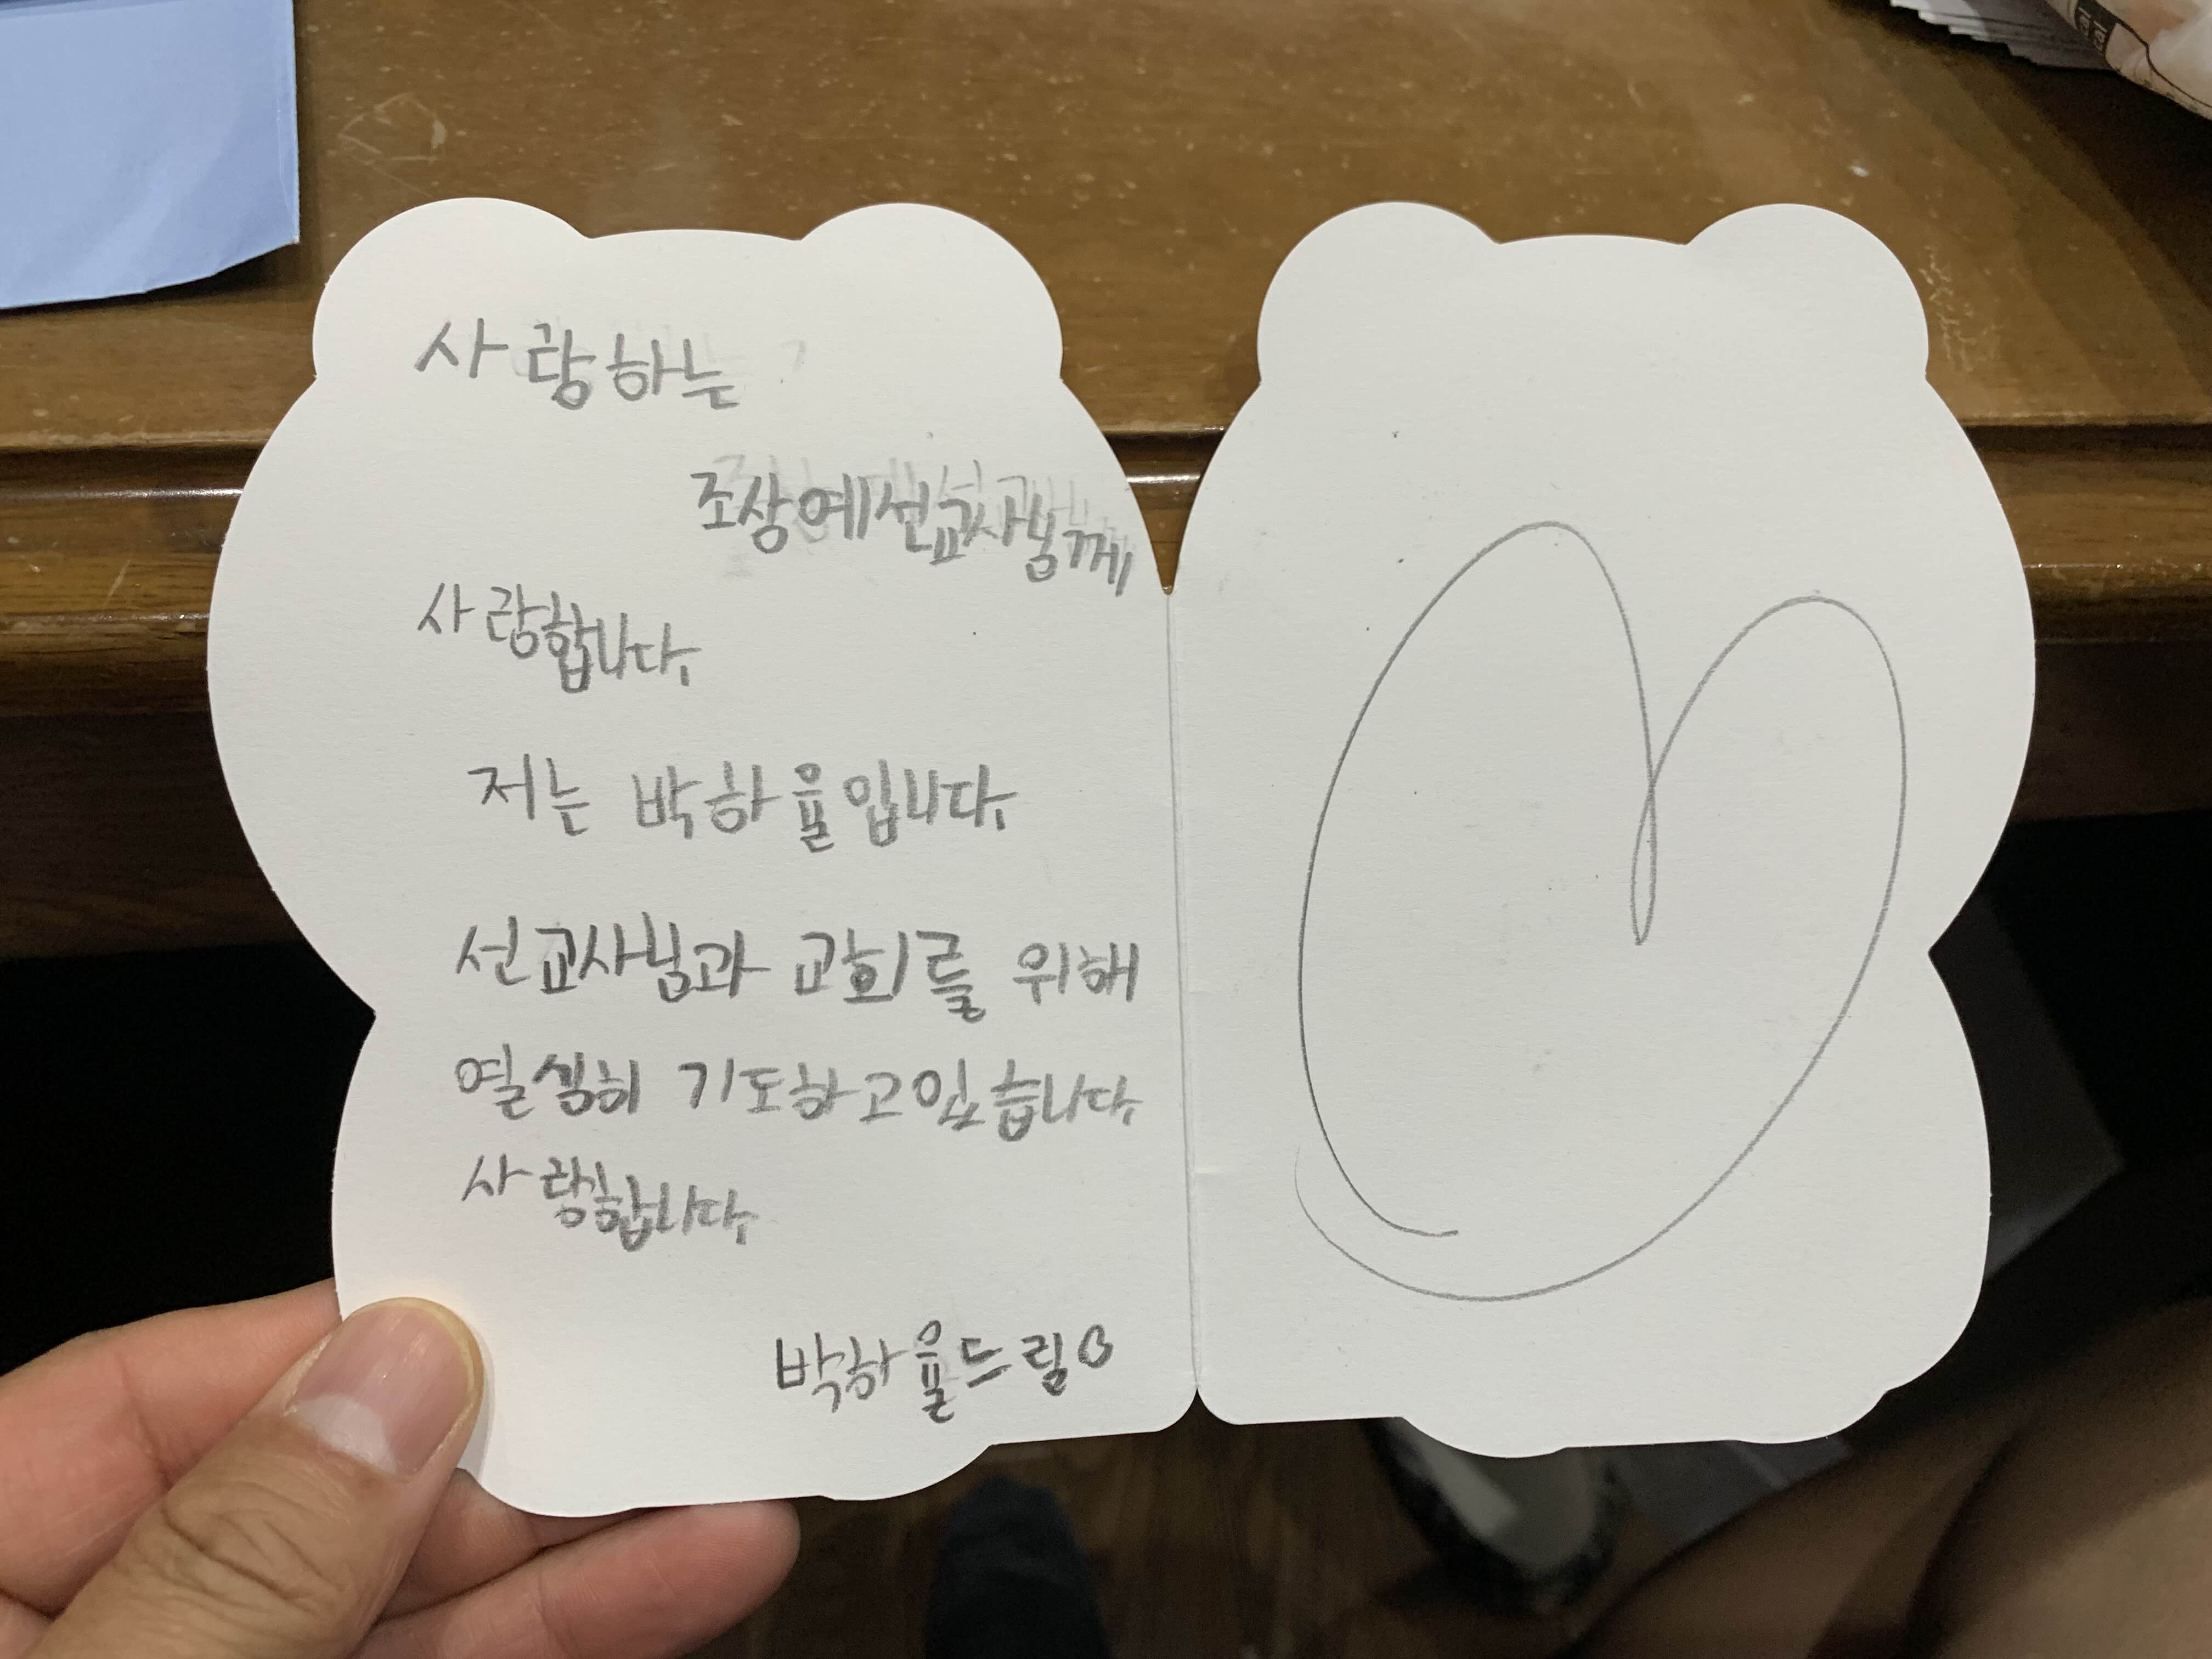 사랑하는
조상예선교사님께
사랑합니다.
저는 박하율입니다.
선교사님과 교회를 위해
열심히 기도하고있습니다.
사랑합니다.
박하율드림